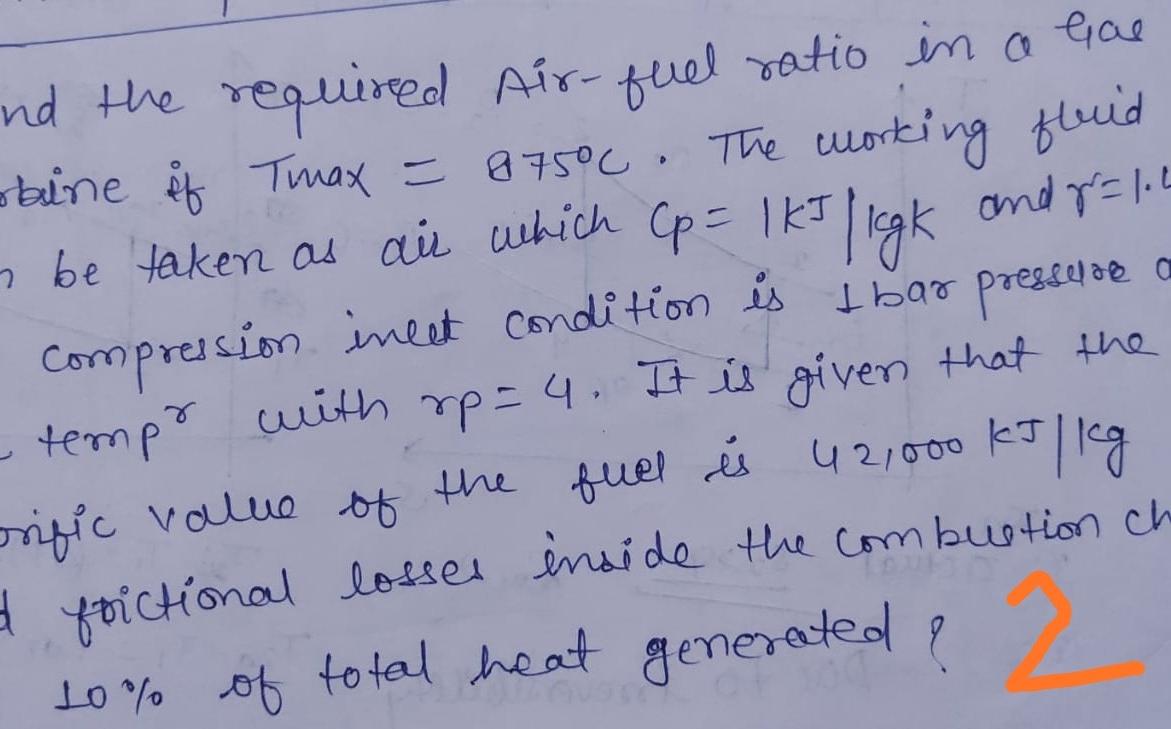 nd the required Air-fuel ratio in a Gas
rbine if Tmax = 875°C. The working fluid
n be taken as air which Cp = 1 kJ/kgk and r=1.4
compression inlet condition is 1 bar pressure a
tempr with rp = 4. It is given that the
orific value of the fuel is 42,000 kJ/kg
d frictional losses inside the combustion ch
10% of total heat generated ?
2